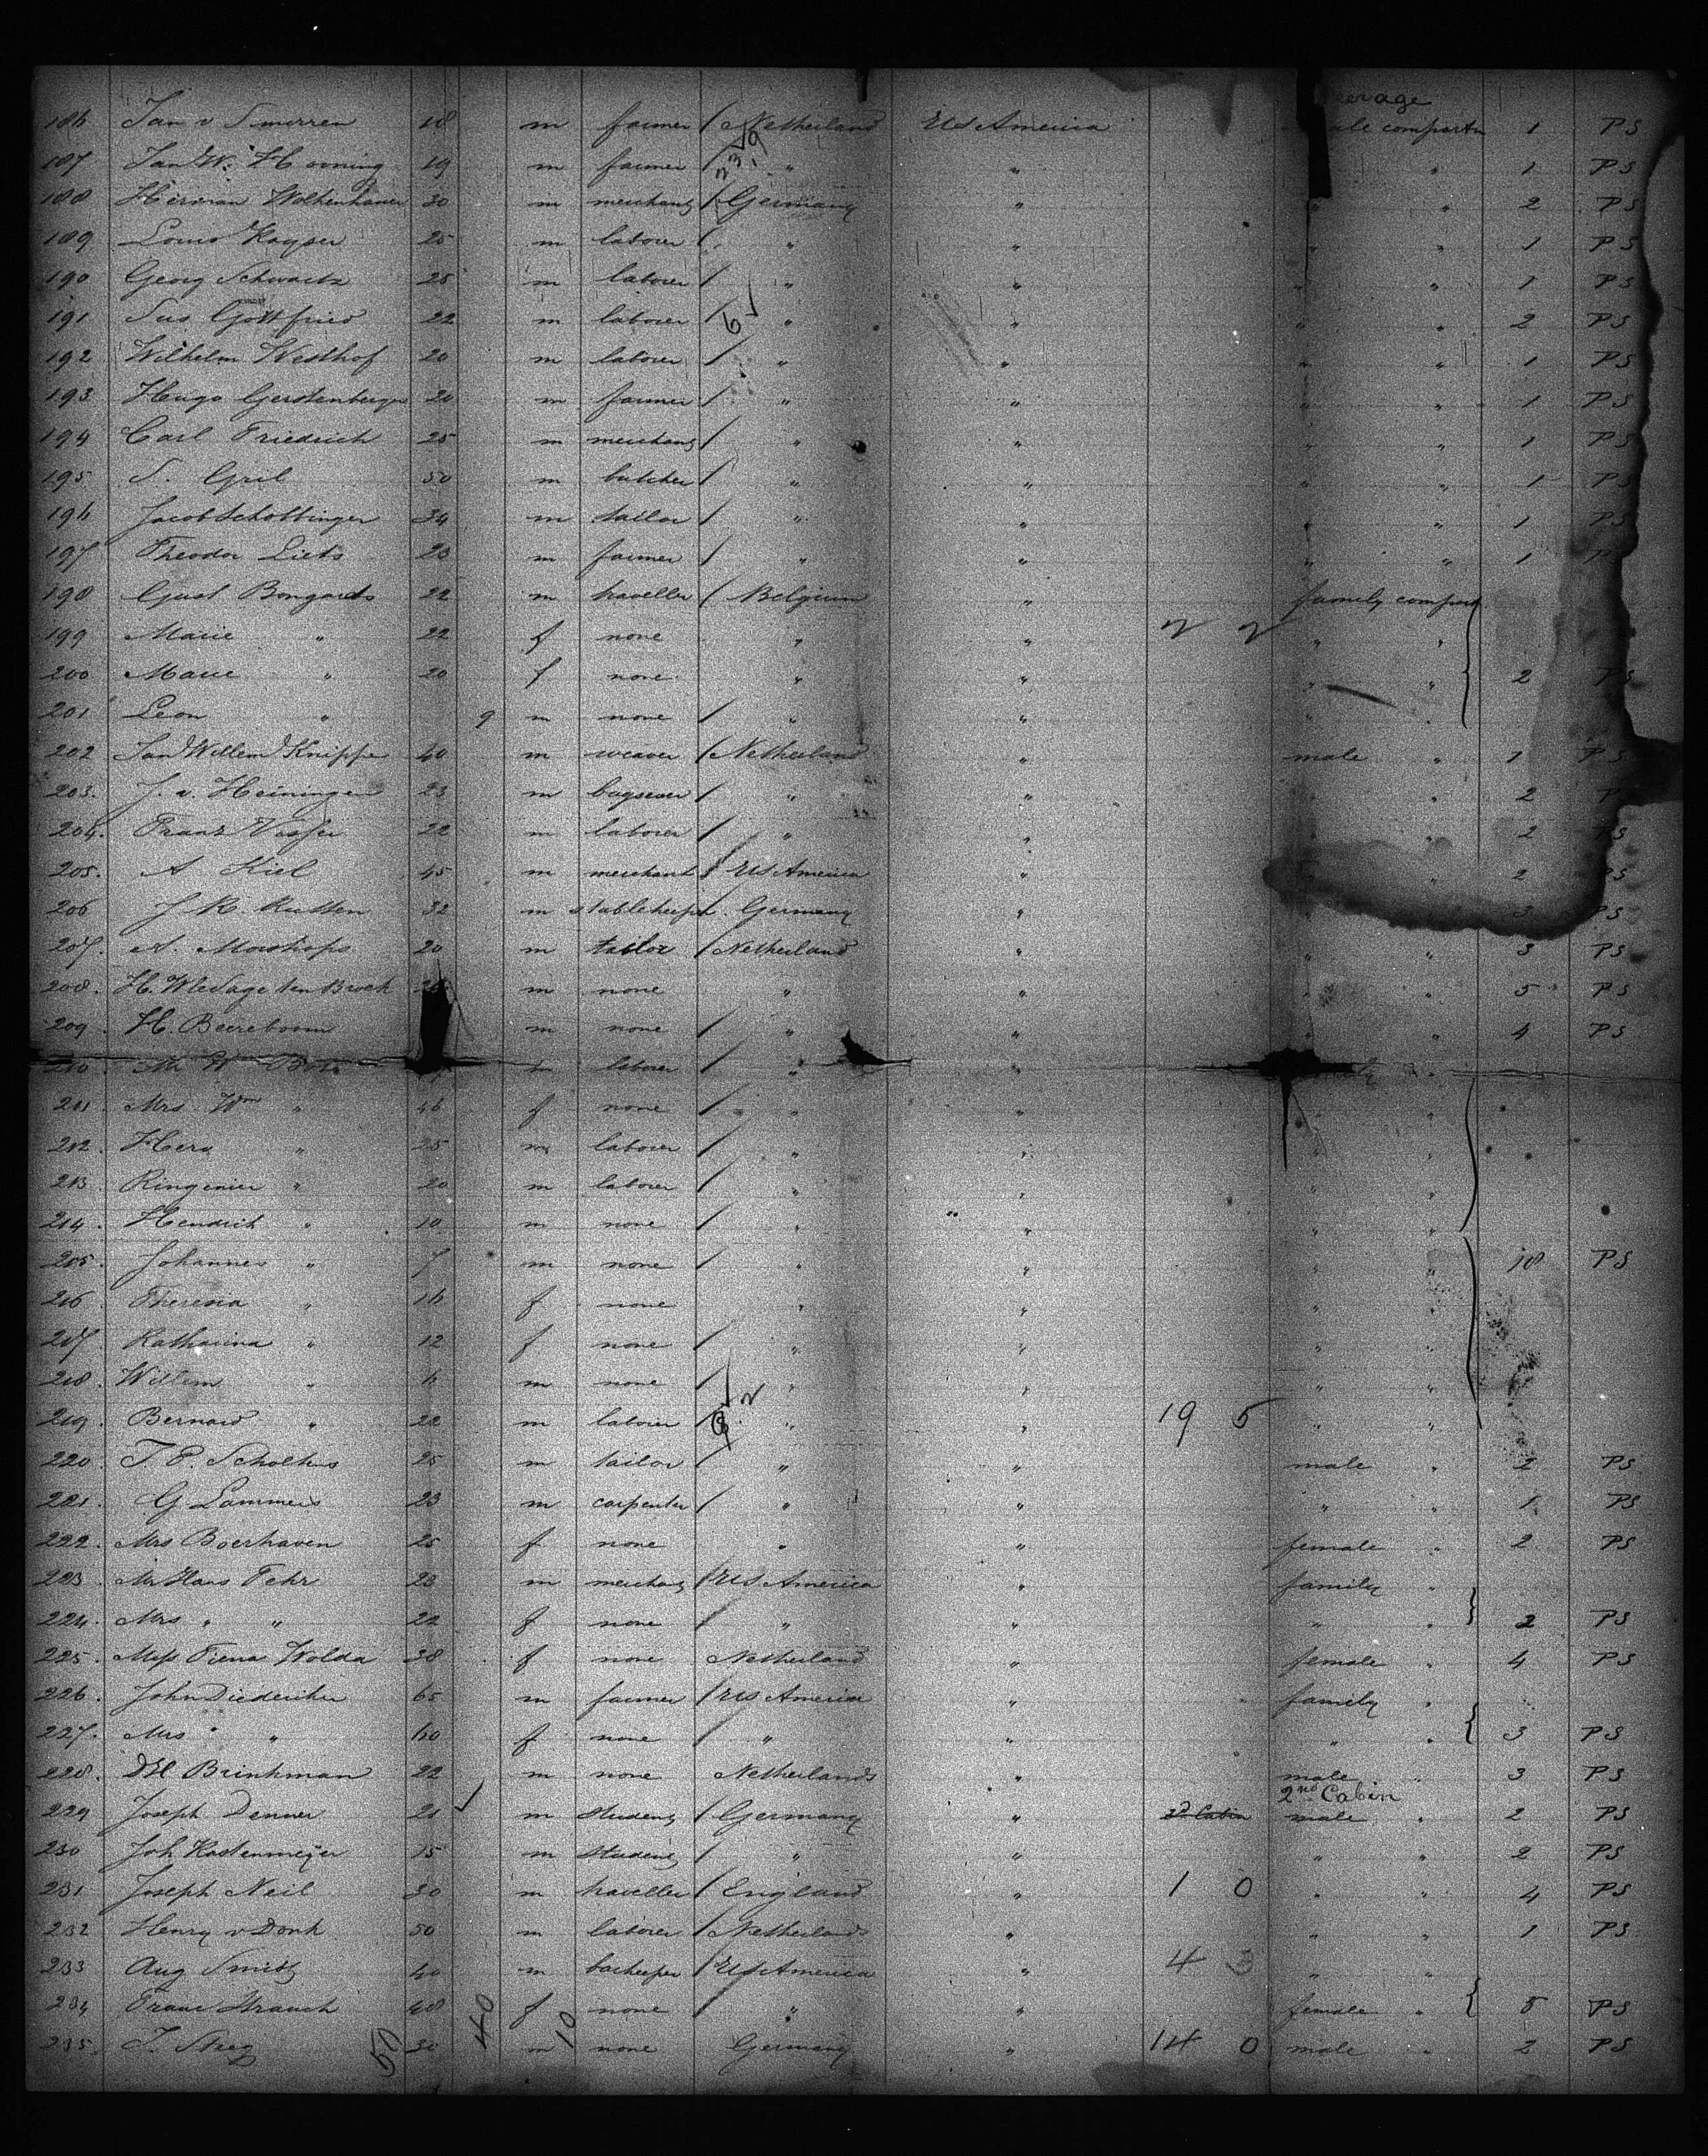 Steerage
186 Jan v Smirren 18 m farmer / Netherland US America male compartm 1 PS
187 Jan W. Hooning 19 m farmer / " " " " 1 PS
188 Herman Wolkenhauer 30 m merchant / Germany " " " 2 PS
189 Louis Kayser 25 m laborer / " " " " 1 PS
190 Georg Schwartz 25 m laborer / " " " " 1 PS
191 Sus Gottfried 22 m laborer / " " " " 2 PS
192 Wilhelm Westhof 20 m laborer / " " " " 1 PS
193 Hugo Gerstenberger 20 m farmer / " " " " 1 PS
194 Carl Friedrich 25 m merchant / " " " " 1 PS
195 S. Gril 50 m butcher / " " " " 1 PS
196 Jacob Schottinger 34 m tailor / " " " " 1 PS
197 Theodor Liets 23 m farmer / " " " " 1 P
198 Gust Bongards 22 m traveller / Belgium " family compart
199 Marie " 22 f none " " " "
200 Marie " 20 f none " " " " 2 PS
201 Leon " 9 m none / " " " "
202 Jan Willem Knippe 40 m weaver / Netherland " male " 1 PS
203. J. v. Heiningen 23 m / " " " 2 P
204. Franz Visser 22 m laborer / " " " 2 PS
205. A Kiel 45 m merchant / US America " " " 2 PS
206 J. R. Rutten 32 m stablekeeper Germany " " 3 PS
207. A. 20 m tailor / Netherland " " " 3 PS
208. H. ten Broek m none " " " " 5 PS
209. H. Beereboom m none / " " " " 4 PS
210 Mr W Bos m laborer / " "
211. Mrs Wm " 46 f none / " " " "
212. Hera " 25 m laborer / " " " "
213. " 20 m laborer / " " " "
214. Hendrik " 10 m none / " " " "
215. Johannes " 7 m none / " " " " 10 PS
216. Theresia " 16 f none " " " "
217. Katharina " 12 f none / " " " "
218. Willem " 6 m none / " " " "
219. Bernard " 22 m laborer / " " 19 5 " "
220. T. E. Scholtens 25 m tailor / " " male " 2 PS
221. G Lammers 23 m carpenter / " " " " 1 PS
222. Mrs Boerhaven 25 f none " " female " 2 PS
223. Mr Hans Fehr 23 m merchant / US America " family "
224. Mrs " " 22 f none / " " " " 2 PS
225. Miss Tiena Wolda 38 f none Netherland " female " 4 PS
226. John Diederiker 65 m farmer / US America " family "
227. Mrs " " 60 f none / " " " " 3 PS
228. DH Brinkman 22 m none Netherlands " male " 3 PS
2nd Cabin
229 Joseph Denner 21 m student / Germany " 2d Cabin male " 2 PS
230 Joh Kostenmeijer 15 m student / " " " " 2 PS
231 Joseph Neil 30 m traveller / England " 1 0 " " 4 PS
232 Henry v Donk 50 m laborer / Netherlands " " " 1 PS
233 Aug Smitz 40 m barkeeper / US America " 4 3 " "
234 Franc Strauch 48 f none / " " female " 5 PS
235. 30 m none Germany " 14 0 male " 2 PS
50 40 10